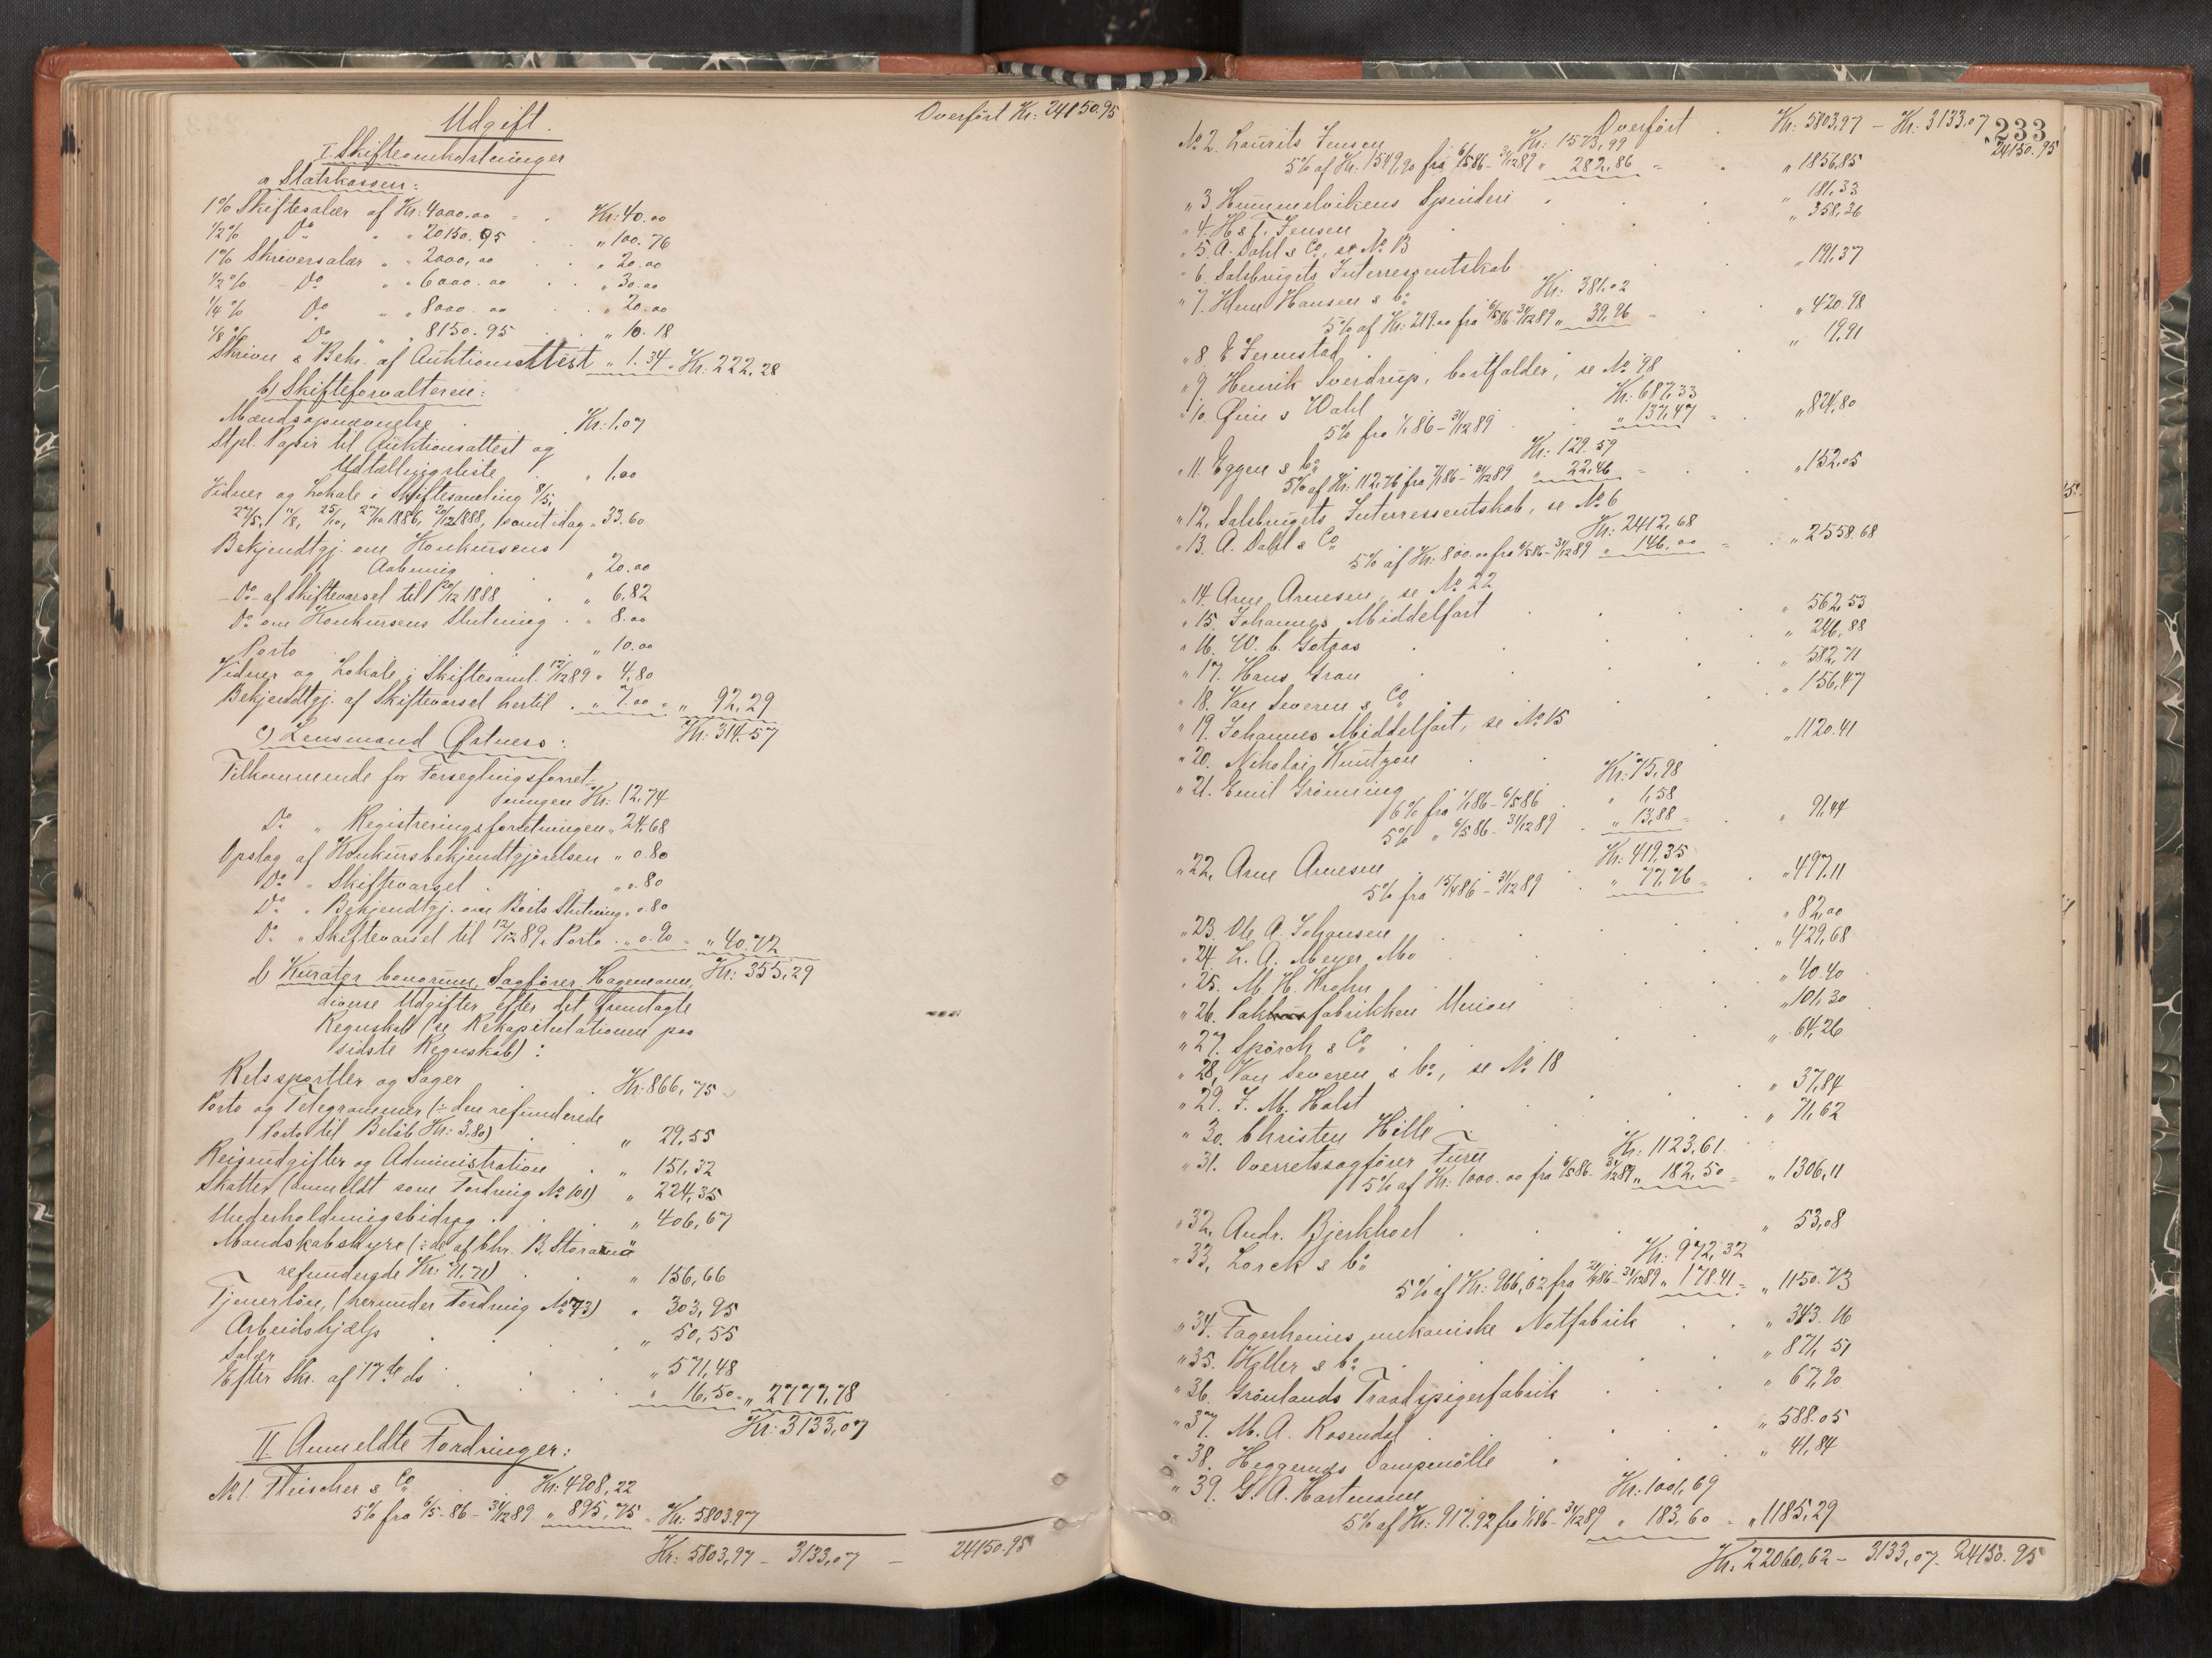 Overført Kr: 24150.95
Udgift.
I. Skifteomkostninger
a Statskassen:
1% Skiftesalær af Kr: 4000.00 = Kr: 40.00
1/2% Do " " 20150.95 " 100.76
1% Skriversalær " " 2000,00 " 20.00
1/2% Do " " 6000.00 " 30.00
1/4% Do " " 8000.00 " 20.00
1/8% Do " " 8150.95 " 10.18
Skriver & Bekr. af Auktionsattest " 1.34 = Kr: 222,28
b) Skifteforvalteren:
Mændsopnævnelse Kr: 1,07
Stpl. Papir til Auktionsattest og
Udtællingsliste " 1,00
Vidner og Lokale i Skiftesamling 8/5,
27/5, 11/8, 25/10, 27/10 1886, 20/12 1888, samt idag " 33.60
Bekjendtgj. om Konkursens
Aabning " 20.00
- Do - af Skiftevarsel til 20/12 1888 " 6,82
Do om Konkursens Slutning " 8.00
Porto " 10.00
Vidner og Lokale i Skiftesaml. 12/12 89 " 4,80
Bekjendtgj. af Skiftevarsel hertil " 7.00 = " 92,29
Kr: 314.57
c) Lensmand Østness:
Tilkommende for Forseglingsforret-
ningen Kr: 12,74
Do " Registreringsforretningen " 24,68
Opslag af Konkursbekjendtgjørelsen " 0.80
Do " Skiftevarsel " 0.80
Do " Bekjendtgj. om Boets Slutning " 0.80
Do " Skiftevarsel til 12/12 89, Porto " 0.90 = " 40.72
Kr: 355,29
d) Kurator bonorum, Sagfører Hagemann,
diverse Udgifter efter det fremlagte
Regnskab (se Rekapitulationen paa
sidste Regnskab):
Retssportler og Sager Kr: 866,75
Porto og Telegrammer (÷ den refunderede
Porto til Beløb Kr: 3,80) " 29,55
Reiseudgifter og Administration " 151,32
Skatter (anmeldt som Fordring No 101) " 224,35
Underholdningsbidrag " 406,67
Mandskabshyre (÷ de af Chr. B. Storannå
refunderede Kr: 71,71) " 156,66
Tjenerløn, (herunder Fordring No 73) " 303,95
Arbeidshjælp " 50,55
Salær " 571,48
Efter Skr. af 17de ds " 16,50 = " 2777,78
Kr: 3133,07
II. Anmeldte Fordringer:
No 1. Fleischer & Co Kr: 4908,22
5% fra 6/5-86 - 31/12 89 " 895,75 = Kr: 5803.97
Kr: 5803,97 - 3133,07 - 24150.95
233
Overført Kr: 5803,97 - Kr: 3133.07
" 24150.95
No 2. Laurits Jensen Kr: 1573,99
5% af Kr. 1549,90 fra 6/5 86 - 31/12 89 " 282,86 = " 1856,85
" 3 Hummelvikens Spinderi " 181,33
" 4. H & T. Jensen " 358,36
" 5. A. Dahl & Co, se No 13
" 6. Salsbrugets Interressentskab " 191,37
" 7. Herm Hansen & Co Kr: 381.02
5% af Kr: 219.00 fra 6/5 86 - 31/12 89 " 39,96 = " 420.98
" 8. E. Jermstad " 19,91
" 9 Henrik Sverdrup, bortfalder, se No 98
" 10. Øien & Wahl Kr: 687,33
5% fra 1/1 86 - 31/12 89 " 137,47 = " 824,80
" 11. Eggen & Co Kr: 129.59
5% af Kr: 112,76 fra 1/1 86 - 31/12 89 " 22,46 = " 152,05
" 12, Salsbrugets Interressentskab, se No 6
" 13. A. Dahl & Co Kr: 2412,68
5% af Kr: 800.00 fra 6/5 86 - 31/12 89 " 146,00 = " 2558.68
" 14. Arne Arnesen, se No 22
" 15. Johannes Middelfart " 562,53
" 16. W. C. Gotaas " 246,88
" 17. Hans Gran " 582,71
" 18. Van Severen & Co " 156,47
" 19. Johannes Middelfart, se No 15
" 20. Nikolai Knutzon " 1120.41
" 21. Emil Grønning Kr: 75,98
6% fra 1/1 86 - 6/5 86 " 1,58
5% " 6/5 86 - 31/12 89 " 13,88 = " 91,44
" 22. Arne Arnesen Kr: 419,35
5% fra 15/4 86 - 31/12 89 " 77,76 = " 497.11
" 23. Ole A. Johansen " 82,00
" 24. L. A. Meyer, Mo " 429,68
" 25. M. H. Krohn " 40.40
" 26. fabrikken Union " 101,30
" 27. Spørck & Co " 64,26
" 28, Van Severen & Co, se No 18
" 29. J. M. Holst " 37,84
" 30. Christen Hille " 71,62
" 31. Overretssagfører Furu Kr: 1123,61
5% af Kr: 1000.00 fra 6/5 86 - 31/12 89 " 182,50 = " 1306,11
" 32, Andr. Bjerkhoel " 53,08
" 33, Lorck & Co Kr: 972,32
5% af Kr: 966,62 fra 21/4 86 - 31/12 89 " 178.41 = " 1150.73
" 34. Fagerheims mekaniske Notfabrik " 343.16
" 35. Keller & Co " 871,51
" 36. Grønlands Traadspigerfabrik " 67,90
" 37. M. A. Rosendal " 588.05
" 38. Heggernds Dampmølle " 41,84
" 39. G. A. Hartmann Kr: 1001,69
5% af Kr: 917.92 fra 1/1 86 - 31/12 89 " 183,60 = " 1185,29
Kr: 22060,62 - 3133,07 - 24150.95